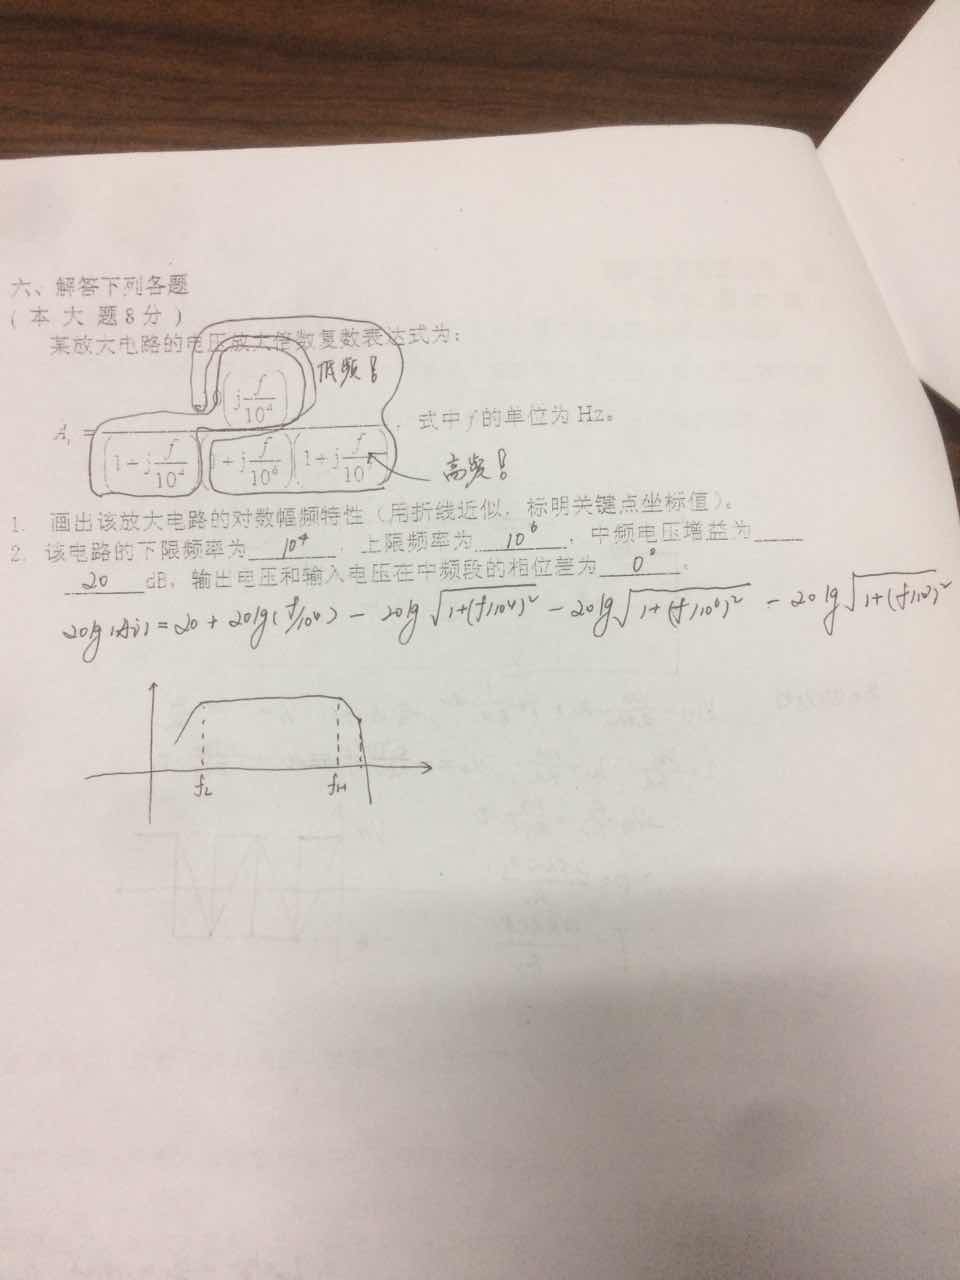 六、解答下列各题
(本大题8分)
某放大电路的电压放大倍数复数表达式为:
(j f/10⁴) 低频!
Aᵢ = , 式中f的单位为Hz。
(1+j f/10⁴)(1+j f/10⁶)(1+j f/10 高频!
1. 画出该放大电路的对数幅频特性(用折线近似, 标明关键点坐标值)。
2. 该电路的下限频率为 10⁴ , 上限频率为 10⁶ , 中频电压增益为
20 dB, 输出电压和输入电压在中频段的相位差为 0° 。
20lg|Ai| = 20 + 20lg(f/10⁴) - 20lg√1+(f/10⁴)² - 20lg√1+(f/10⁶)² - 20lg√1+(f/10)²
fL fH